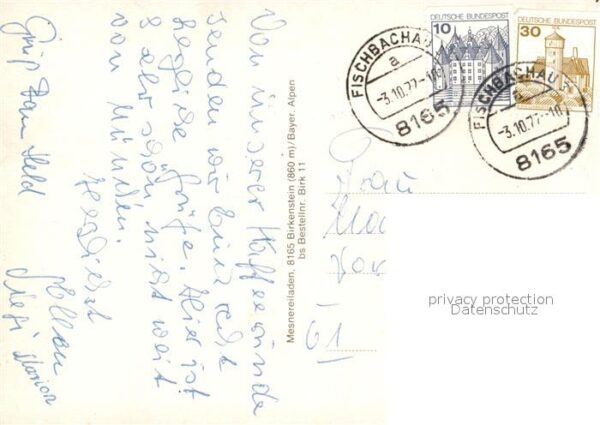 Von unserer Kaffeerunde
senden wir Euch recht
herzliche Grüße. Hier ist
es sehr schön nicht weit
von München.
Herzlichst
Marion
Mesnereiladen, 8165 Birkenstein (860 m)/Bayer. Alpen
bs Bestellnr. Birk 11
DEUTSCHE BUNDESPOST
10
DEUTSCHE BUNDESPOST
30
FISCHBACHAU
a
-3.10.77-10
8165
FISCHBACHAU
-3.10.77-10
8165
Frau
61
privacy protection
Datenschutz